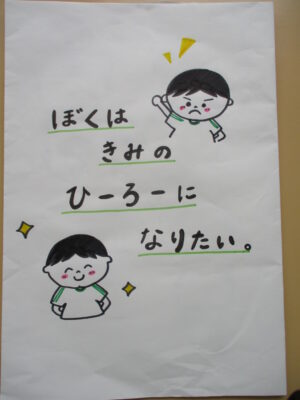 ぼくは
きみの
ひーろーに
なりたい。